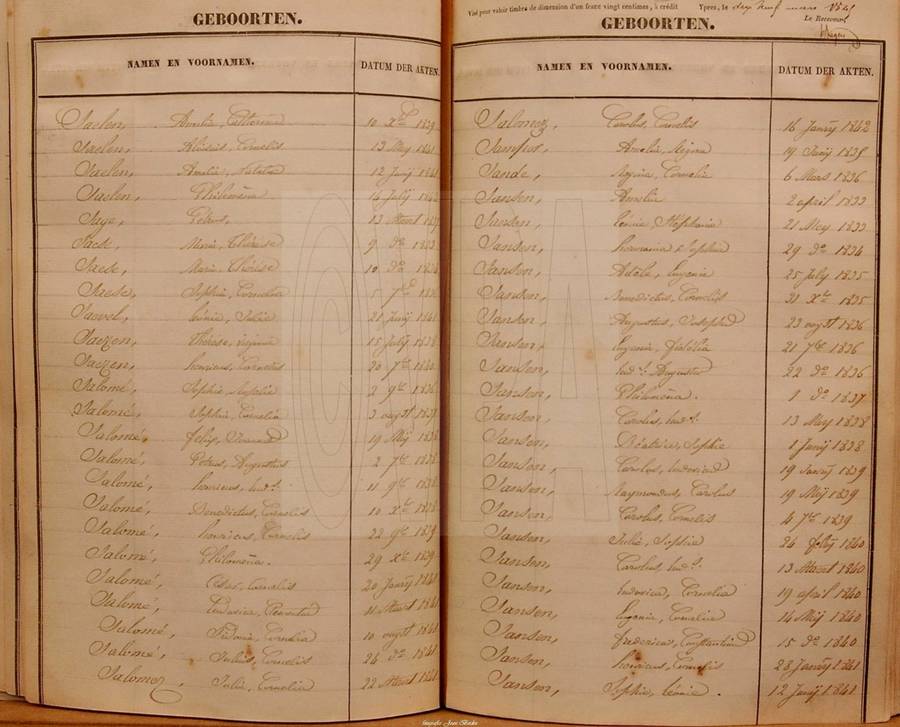 GEBOORTEN.
NAMEN EN VOORNAMEN. DATUM DER AKTEN.
Saelen, Amelie, Catherina 10 Xbre 1839
Saelen, Aloisius, Cornelis 13 Mey 1841
Saelen, Amelie, Natalia 12 Junij 1841
Saelen, Philomena 14 July
Sage, Petrus, 13 Maert
Sack, Marie, Thérèse 9 do 1833
Saese, Marie, Thérèse 10 do
Saese, Sophie, Cornelia 5 7bre
Sawel, Lénie, Julie 21 Junij 1841
Saezen, Thérèse, 15 July 1838
Saezen, henricus, Cornelis 20 7bre 1840
Salomé, Sophie, 2 9bre 1836
Salomé, Sophie, Cornelia 3 oogst 1837
Salomé, felix, 19 Mij 1838
Salomé, Petrus, Augustus 2 7bre 1838
Salomé, henricus, lud. 11 9bre 1838
Salomé, Benedictus, Cornelis 10 Xbre 1838
Salomé, henricus, Cornelis 22 9bre 1839
Salomé, Philomena. 29 Xbre 1839
Salomé, Cesar, Cornelis 20 Janry 1841
Salomé, Ludovica, 11 Maert 1841
Salomé, Sidonie, Cornelia 10 oogst 1841
Salomé, Julius, Cornelis 24 do 1841
Salomez, Julie, Cornelia 22 Maert 1841
Visé pour valoir timbre de dimension d'un franc vingt centimes, à crédit Ypres, le dix neuf mars 1851
Le Receveur
GEBOORTEN.
NAMEN EN VOORNAMEN. DATUM DER AKTEN.
Salomez, Carolus, Cornelis 16 Janry 1842
Samson, Amelie, Regina 19 Junij 1835
Sande, Regina, Cornelia 6 Mars 1836
Sansen, Amelie 2 april 1833
Sansen, Lénie, Stéphanie 21 Mey 1833
Sansen, hermania Sophia 29 do 1834
Sansen, Adèle, Eugenie 25 July 1835
Sansen, Benedictus, Cornelis 31 Xbre 1835
Sansen, Augustus, Josephus 23 oogst 1836
Sansen, Eugenie, 21 7bre 1836
Sansen, lud. Augustus 22 do 1836
Sansen, Philomena. 1 do 1837
Sansen, Carolus, lud. 13 Mey 1838
Sansen, Béatrice, Sophie 1 Junij 1838
Sansen, Carolus, Ludovicus 19 Janry 1839
Sansen, Raymondus, Carolus 19 Mij 1839
Sansen, Carolus, Cornelis 4 7bre 1839
Sansen, Julie, Sophie 24 febry 1840
Sansen, Carolus, lud. 13 Maert 1840
Sansen, Ludovica, Cornelia 19 april 1840
Sansen, Eugenie, Cornelia 14 Mij 1840
Sansen, fredericus, Constantinus 15 do 1840
Sansen, henricus, Cornelis 28 Janry 1841
Sansen, Sophie, Lénie. 12 Junij 1841